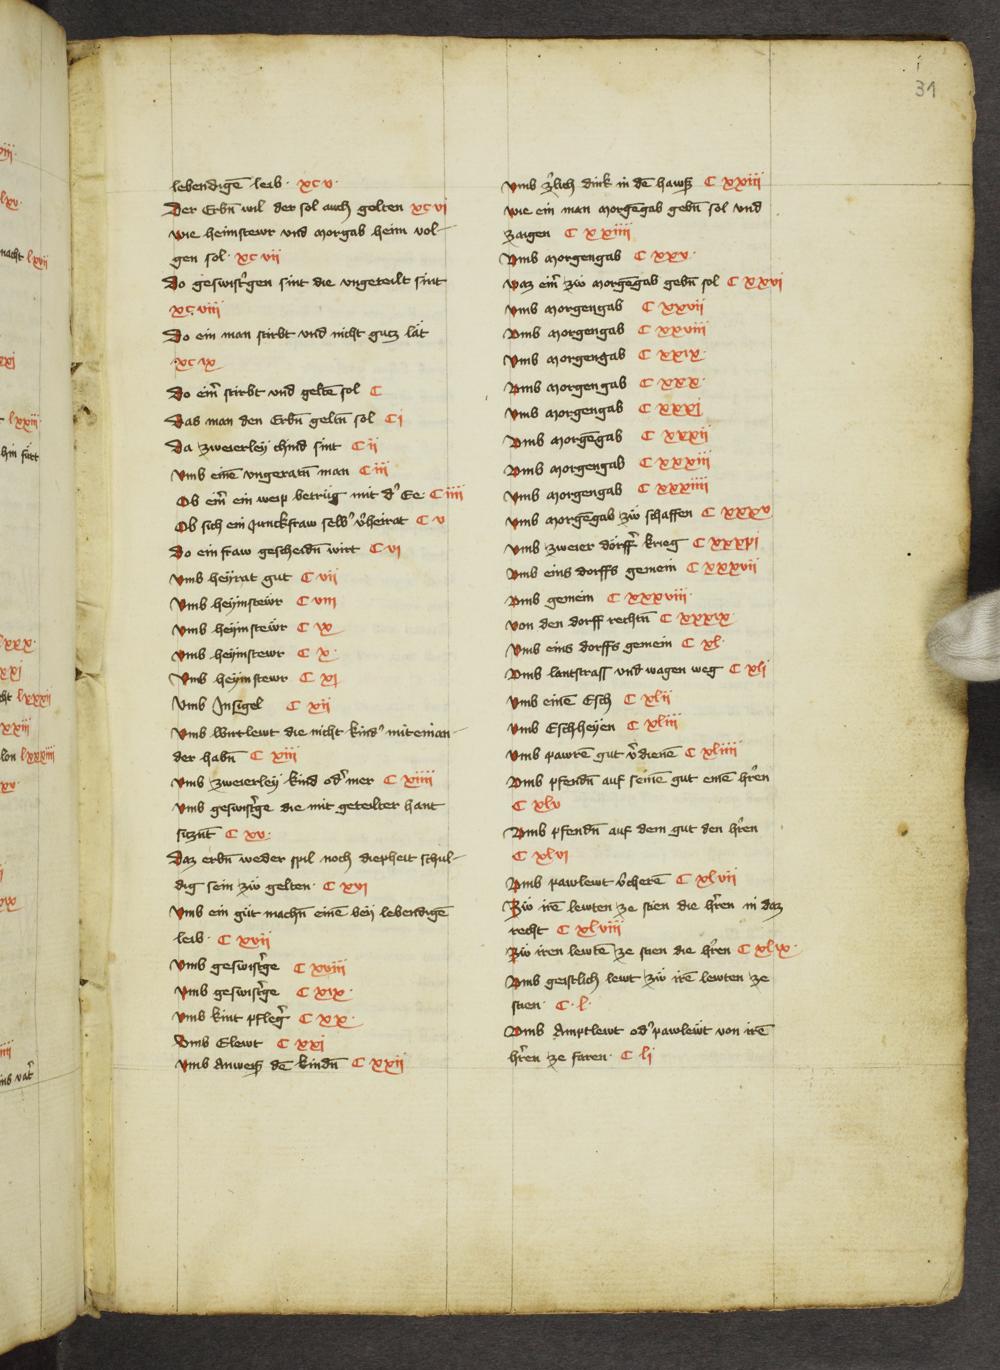 i
31
lebendigē leib · xcv ·
Der Erbñ wil der sol auch gelten xcvi
wie heimstewr vnd morgab heim vol-
gen sol · xcvii
Do geswist͛gen sint die vngeteilt sint
xcviii
Do ein man stirbt vnd nicht gutz lät
xcix
Do eiñ stirbt vnd geltē sol C
Das man den Erbñ geltñ sol Ci
Da zweierleÿ chind sint Cii
vmb einē vngeratñ man Ciii
Ob eiñ ein weip betrüg mit d͛ Ee · Ciiii
Ob sich ein Junckfraw selb͛ v͛heirat Cv
Do ein fraw gescheidñ wirt Cvi
vmb heÿrat gut Cvii
vmb heÿmstewr Cviii
vmb heÿmstewr Cix
vmb heÿmstewr Cx ·
vmb heÿmstewr Cxj
vmb Insigel Cxii
vmb Wirtlewt die nicht kind͛ miteinan-
der habñ Cxiii
vmb zweierleÿ kind od͛ mer Cxiiii
vmb geswist͛ge die mit geteilter hant
siczñt Cxv ·
Daz erbñ weder spil noch diepheit schul-
dig sein zw gelten · Cxvi
vmb ein gut machñ einē beÿ lebendigē
leib · Cxvii
vmb geswist͛ge Cxviii
vmb geswist͛ge Cxix ·
vmb kint pfleg͛ Cxx ·
vmb Elewt Cxxj
vmb Anweiß dē kindñ Cxxii
vmb z͛lich dink in dē hawß Cxxiii
wie ein man morgēgab gebñ sol vnd
zaigen Cxxiiii
vmb morgengab Cxxv ·
waz eiñ zw morgēgab gebñ sol Cxxvi
vmb morgengab Cxxvii
vmb morgengab Cxxviii
vmb morgengab Cxxix ·
vmb morgengab Cxxx ·
vmb morgengab Cxxxj
vmb morgēgab Cxxxii
vmb morgengab Cxxxiii
vmb morgengab Cxxxiiii
vmb morgēgab zw schaffen Cxxxv
vmb zweier dörff͛ krieg Cxxxvi
vmb eins dorffs gemein Cxxxvii
vmb gemein Cxxxviii ·
von den dorff rechtñ Cxxxix ·
vmb eins dorffs gemein Cxl ·
vmb lantstrass vnd wagen weg Cxlj
vmb einē Esch Cxlii
vmb Eschheyen Cxliii
vmb pawrē gut v͛dienē Cxliiii
vmb pfendñ auf seinē gut einē h͛ren
Cxlv
vmb pfendñ auf dem gut den h͛ren
Cxlvi
vmb pawlewt v͛cherē Cxlvii
Zw irē lewten ze sten die h͛ren in daz
recht Cxlviii
Zw iren lewtē ze sten die h͛ren Cxlix ·
vmb geistlich lewt zw irē lewten ze
sten · C · l ·
vmb Amptlewt od͛ pawlewt von irē
h͛ren ze faren · Clj